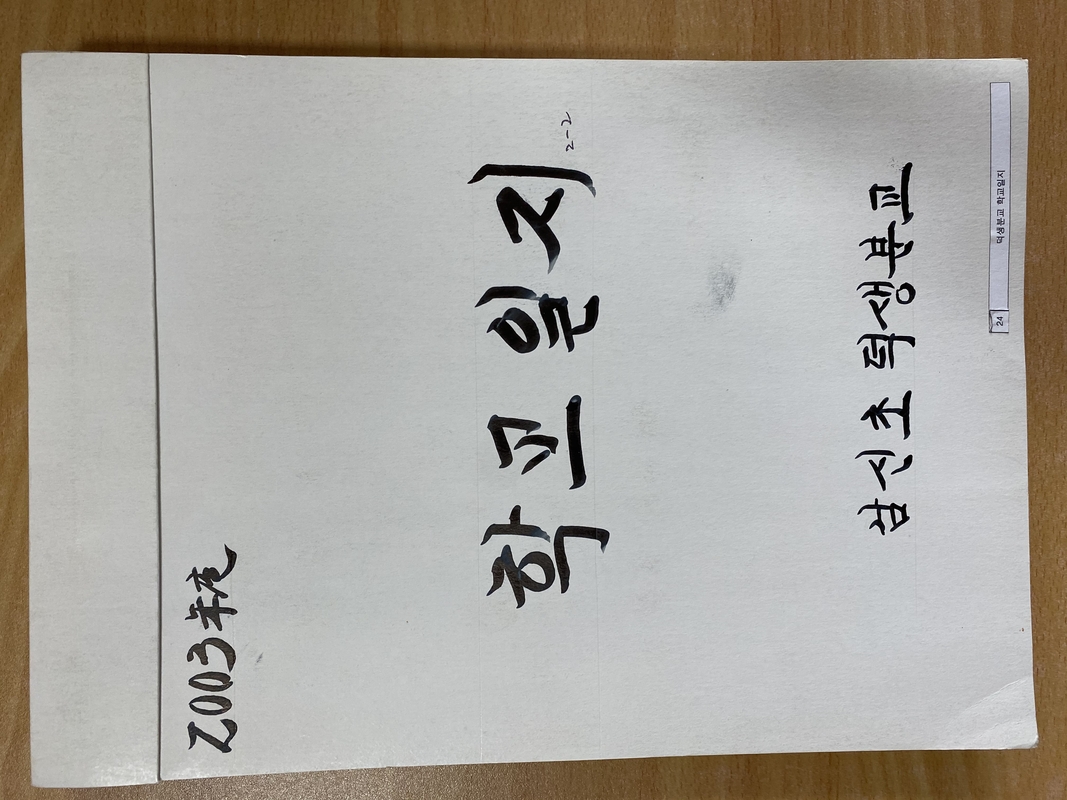 2003年度
학교일지
2-2
삼신초 덕생분교
24 덕생분교 학교일지